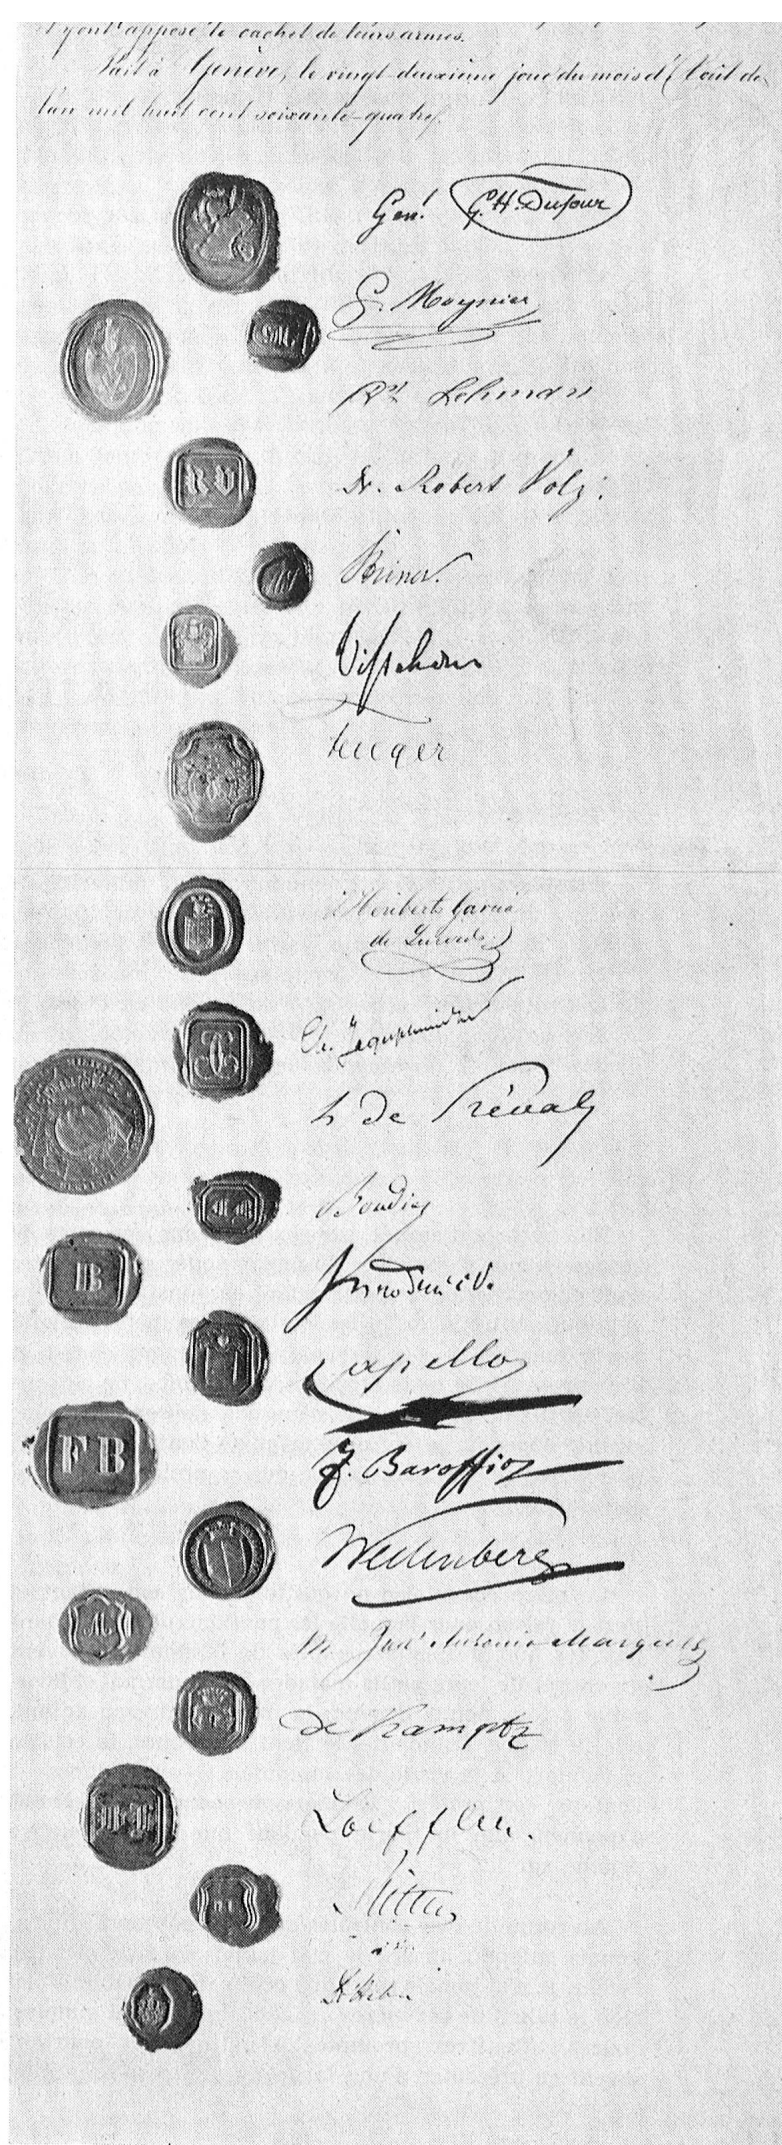 et y ont apposé le cachet de leurs armes.
Fait à Genève, le vingt-deuxième jour du mois d'Août de
l'an mil huit cent soixante-quatre.
Genl. G. H. Dufour
G. Moynier
GM
Dr Lehmann
RV
Dr. Robert Volz.
Briner.
Visschers
Fenger
Heriberto Garcia
de Quevedo
Ch. Jagerschmidt
H de Préval
Boudier
B
Brodrück.
Capello
F B
F. Baroffio
Westenberg
M
José Antonio Marques
de Kamptz
Loeffler.
Ritter
Dr Hahn